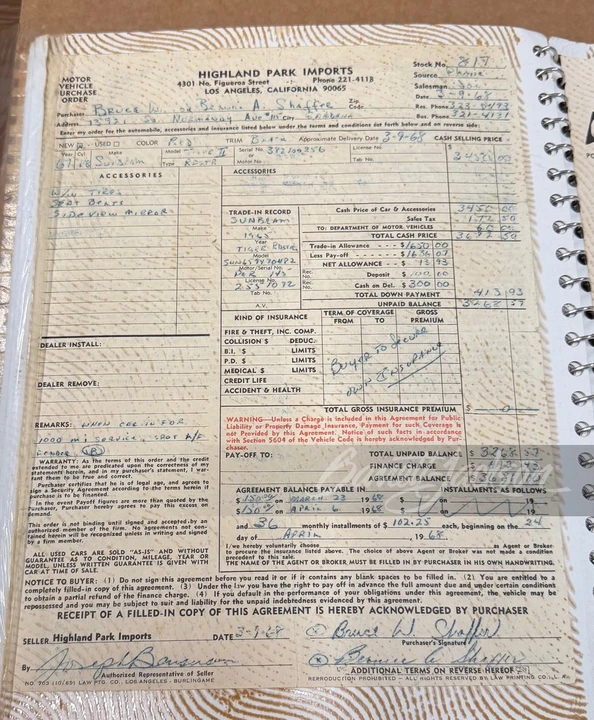 MOTOR VEHICLE PURCHASE ORDER
HIGHLAND PARK IMPORTS
4301 No. Figueroa Street Phone 221-4118
LOS ANGELES, CALIFORNIA 90065
Stock No.
Source Phone
Salesman
Date 3-9-68
Purchaser Bruce W. Bonnie A. Shaffer
Zip Code
Res. Phone
Address So. Normandy Ave City
Bus. Phone
Enter my order for the automobile, accessories and insurance listed below under the terms and conditions set forth below and on reverse side.
NEW USED COLOR Red TRIM Black Approximate Delivery Date 3-9-68 CASH SELLING PRICE
Yr. Cyl. Make Model Type Serial No. Motor No. License No. Tab No.
67 Sunbeam Tiger II RDSTR 3450 00
ACCESSORIES
ACCESSORIES
W/W TIRES
SEAT BELTS
SIDE VIEW MIRROR
TRADE-IN RECORD
SUNBEAM
Make
1965
Year
TIGER RDSTR
Model
Motor/Serial No.
License No.
Tab No.
A.V.
Cash Price of Car & Accessories 3450 00
Sales Tax 172 50
TO: DEPARTMENT OF MOTOR VEHICLES
TOTAL CASH PRICE
Trade-in Allowance - - - $ 1650 00
Less Pay-off - - - $ 1636 07
NET ALLOWANCE - - $ 13 93
Rec. No. Deposit $ 100 00
Rec. No. Cash on Del. $ 300 00
TOTAL DOWN PAYMENT 413 93
UNPAID BALANCE 3268 57
KIND OF INSURANCE
TERM OF COVERAGE
FROM TO
GROSS PREMIUM
FIRE & THEFT, INC. COMP.
COLLISION $ DEDUC.
B.I. $ LIMITS
P.D. $ LIMITS
MEDICAL $ LIMITS
CREDIT LIFE
ACCIDENT & HEALTH
Buyer to secure
own insurance
TOTAL GROSS INSURANCE PREMIUM $ 0
DEALER INSTALL:
DEALER REMOVE:
REMARKS: WHEN CAR IN FOR
1000 mi SERVICE, SPOT L/F
FENDER
WARNING—Unless a Charge is Included in this Agreement for Public Liability or Property Damage Insurance, Payment for such Coverage is not Provided by this Agreement. Notice of such facts in accordance with Section 5604 of the Vehicle Code is hereby acknowledged by Purchaser.
WARRANTY: As the terms of this order and the credit
extended to me are predicated upon the correctness of my
statements herein, and in my purchaser's statement, I warrant them to be true and correct.
Purchaser certifies that he is of legal age, and agrees to sign a Security Agreement according to the terms herein if purchase is to be financed.
In the event Payoff figures are more than quoted by the Purchaser, Purchaser hereby agrees to pay this excess on demand.
This order is not binding until signed and accepted by an authorized member of the firm. No agreements not contained herein will be recognized unless in writing and signed by a firm member.
ALL USED CARS ARE SOLD "AS-IS" AND WITHOUT GUARANTEE AS TO CONDITION, MILEAGE, YEAR OR MODEL, UNLESS WRITTEN GUARANTEE IS GIVEN WITH CAR AT TIME OF SALE.
PAY-OFF TO:
TOTAL UNPAID BALANCE $ 3268 57
FINANCE CHARGE $
AGREEMENT BALANCE $
AGREEMENT BALANCE PAYABLE IN INSTALLMENTS AS FOLLOWS
$ 150.00 on MARCH 23 1968 $ on 19
$ 150.00 on APRIL 6 1968 $ on 19
and 36 monthly installments of $ 102.25 each, beginning on the 24
day of APRIL, 1968.
I/we hereby voluntarily choose as Agent or Broker
to procure the insurance listed above. The choice of above Agent or Broker was not made a condition precedent to this sale.
THE NAME OF THE AGENT OR BROKER MUST BE FILLED IN BY PURCHASER IN HIS OWN HANDWRITING.
NOTICE TO BUYER: (1) Do not sign this agreement before you read it or if it contains any blank spaces to be filled in. (2) You are entitled to a
completely filled-in copy of this agreement. (3) Under the law you have the right to pay off in advance the full amount due and under certain conditions
to obtain a partial refund of the finance charge. (4) If you default in the performance of your obligations under this agreement, the vehicle may be
repossessed and you may be subject to suit and liability for the unpaid indebtedness evidenced by this agreement.
RECEIPT OF A FILLED-IN COPY OF THIS AGREEMENT IS HEREBY ACKNOWLEDGED BY PURCHASER
SELLER Highland Park Imports DATE 3-9-68 Bruce W. Shaffer
Purchaser's Signature
By
Authorized Representative of Seller
Bonnie A. Shaffer
ADDITIONAL TERMS ON REVERSE HEREOF
NO. 703 (10/65) LAW PTG. CO., LOS ANGELES - BURLINGAME
REPRODUCTION PROHIBITED - ALL RIGHTS RESERVED BY LAW PRINTING CO., L.A.